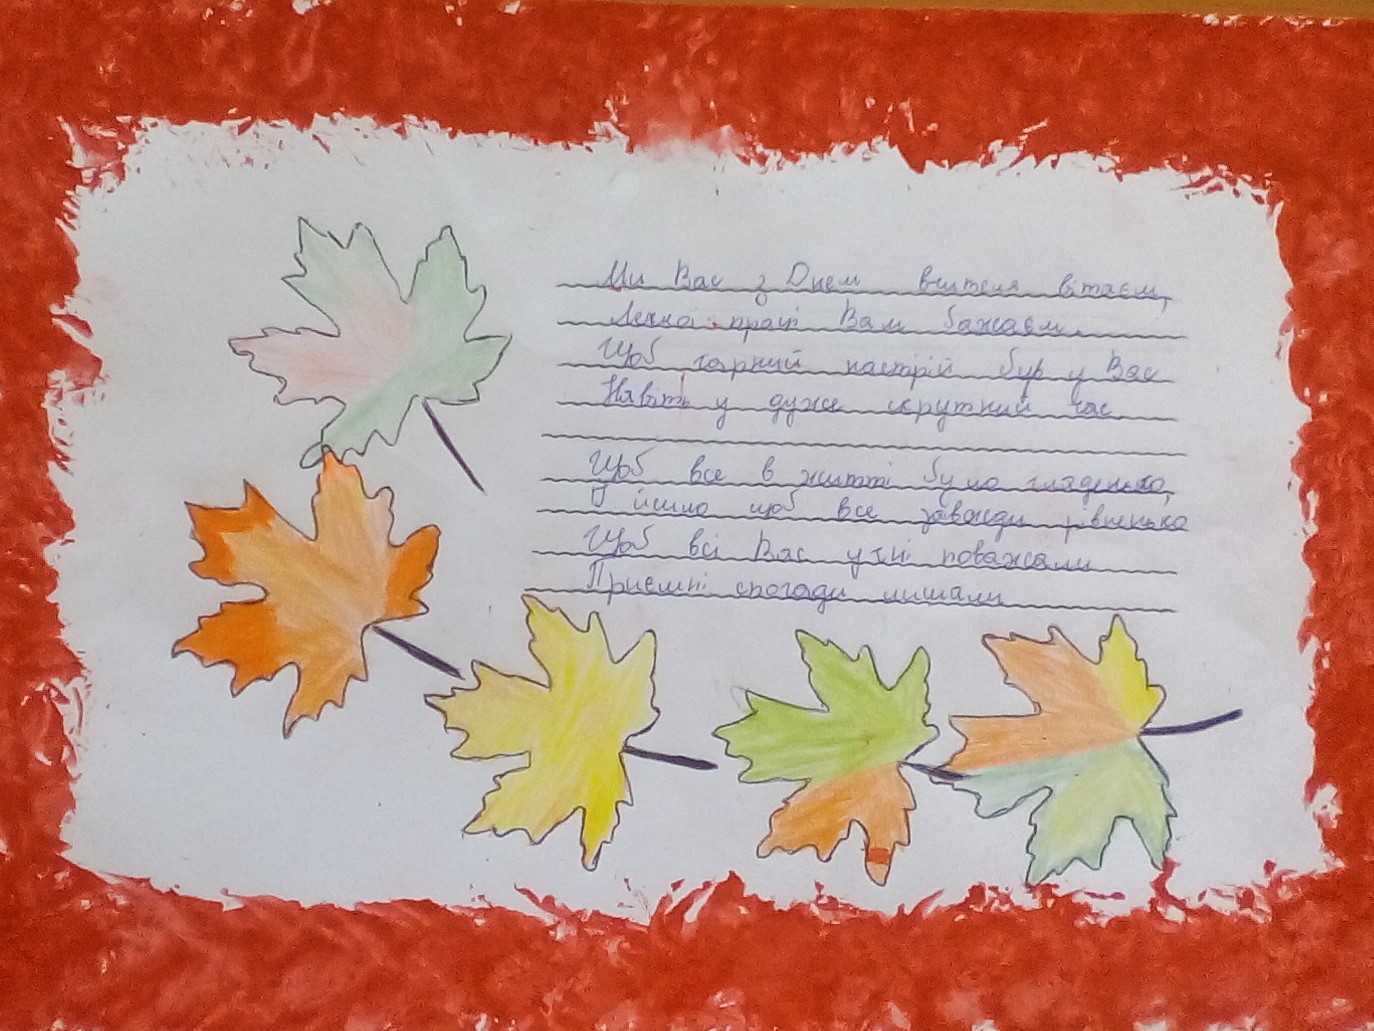 Ми Вас з Днем вчителя вітаєм,
Легкої праці Вам бажаєм.
Щоб гарний настрій був у Вас
Навіть у дуже скрутний час
Щоб все в житті було гладенько,
І йшло щоб все завжди рівненько
Щоб всі Вас учні поважали
Приємні спогади лишали